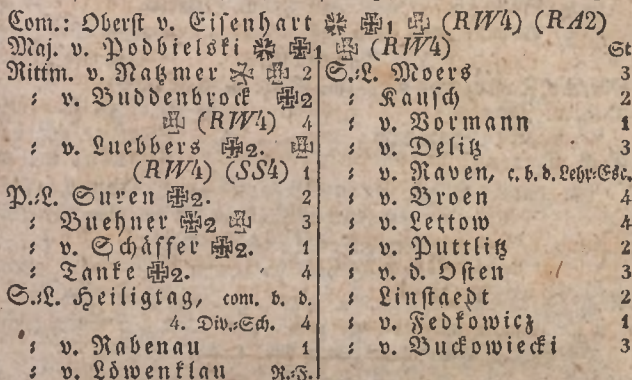 Com.: Oberst v. Eisenhart 1 (RW4) (RA2)
Maj. v. Podbielski 1 (RW4) St
Rittm. v. Natzmer 2
: v. Buddenbrock 2
(RW4) 4
: v. Luebbers 2.
(RW4) (SS4) 1
P.:L. Suren 2. 2
: Buehner 2 3
: v. Schäffer 2. 1
: Tanke 2. 4
S.:L. Heiligtag, com. b. d.
4. Div.:Sch. 4
: v. Rabenau 1
: v. Löwenklau R.:F.
S.:L. Moers 3
: Kausch 2
: v. Vormann 1
: v. Delitz 3
: v. Raven, c. b. d. Lehr:Esc.
: v. Broen 4
: v. Lettow 4
: v. Puttlitz 2
: v. d. Osten 3
: Linstaedt 2
: v. Fedkowicz 1
: v. Buckowiecki 3